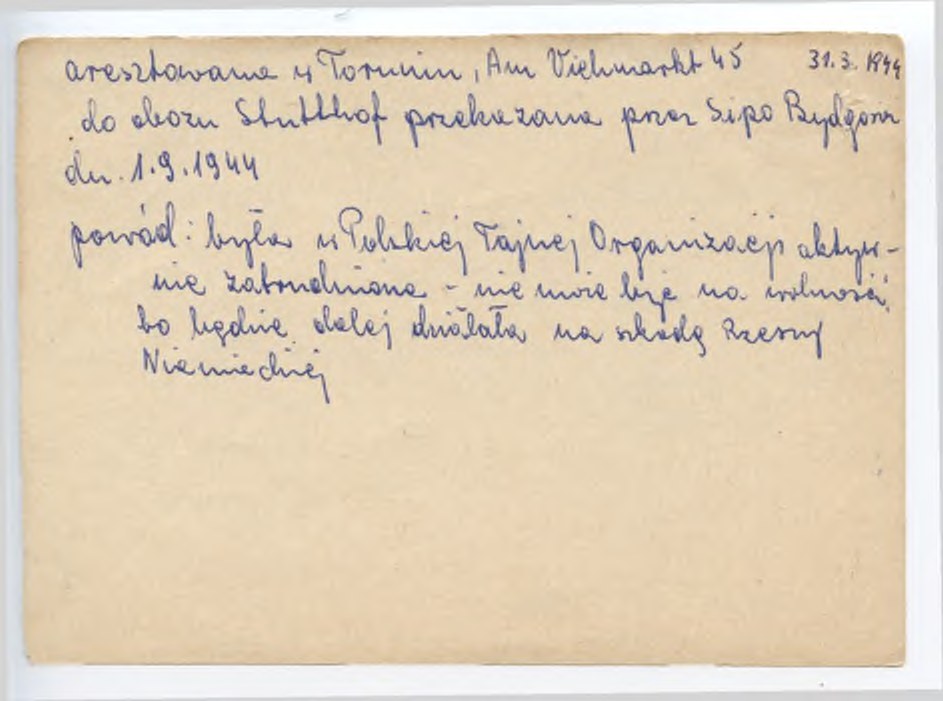 aresztowana w Toruniu, Am Viehmarkt 45 31.3.1944
do obozu Stutthof przekazana przez Sipo Bydgoszcz
dn. 1.9.1944
powód: była w Polskiej Tajnej Organizacji aktyw-
nie zatrudniona - nie może być na wolności,
bo będzie dalej działała na szkodę Rzeszy
Niemieckiej